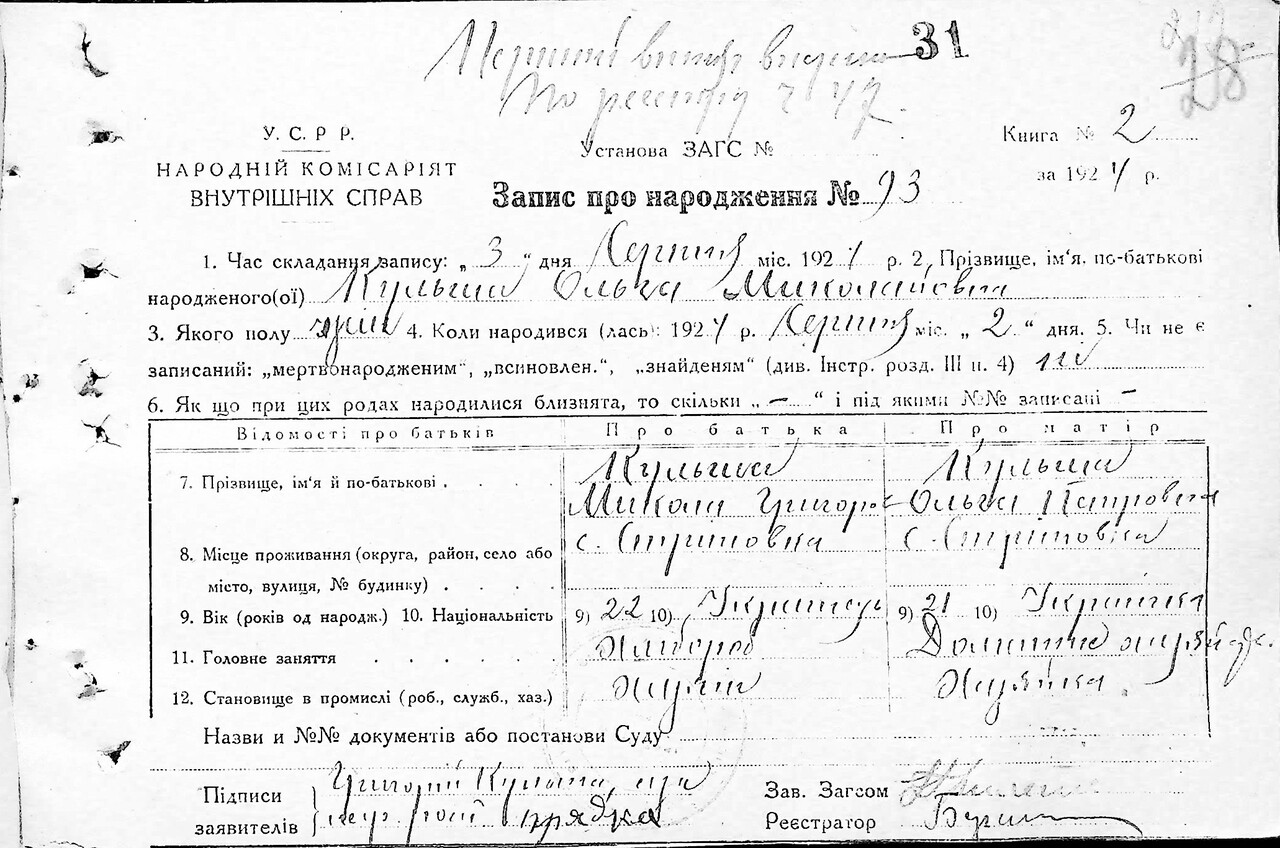 31
28
Перший випис видано
по реєстру ч 47
У. С. Р Р.
НАРОДНІЙ КОМІСАРІЯТ
ВНУТРІШНІХ СПРАВ
Установа ЗАГС №
Книга № 2
за 1924 р.
Запис про народження № 93
1. Час складання запису: „ 3 “ дня Серпня міс. 1924 р. 2, Прізвище, ім'я, по-батькові
народженого(ої) Ольга Миколаївна
3. Якого полу жін 4. Коли народився (лась): 1924 р. Серпня міс. „ 2 “ дня. 5. Чи не є
записаний: „мертвонародженим“, „всиновлен.“, „знайденям“ (див. Інстр. розд. III п. 4) ні
6. Як що при цих родах народилися близнята, то скільки „ — “ і під якими №№ записані —
Відомості про батьків Про батька Про матір
7. Прізвище, ім'я й по-батькові . . . .
Микола Григоров Ольга Петровна
8. Місце проживання (округа, район, село або
місто, вулиця, № будинку) . . . .
с. с.
9. Вік (років од народж.) 10. Національність 9) 22 10) Українець 9) 21 10) Українка
11. Головне заняття . . . . . . Хлібороб Домашне
12. Становище в промислі (роб., служб., хаз.) Хазяїн Хазяйка
Назви и №№ документів або постанови Суду
Підписи
заявителів
Григорій
Зав. Загсом
Реєстратор